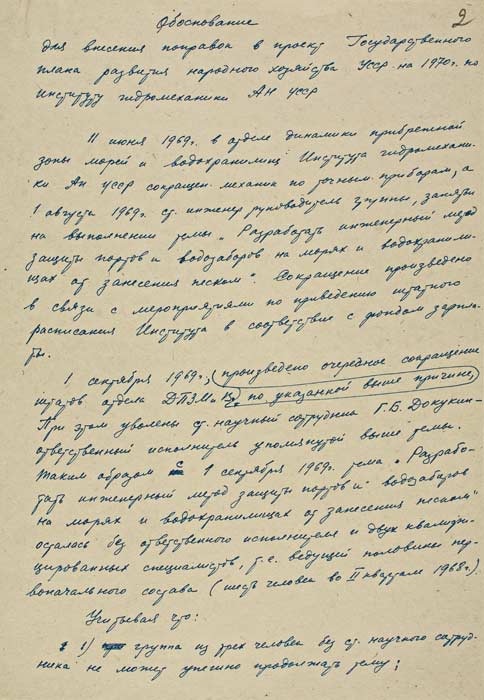 2
Обоснование
для внесения поправок в проект Государственного
плана развития народного хозяйства УССР на 1970г. по
Институту гидромеханики АН УССР
11 июня 1969г. в отделе динамики прибрежной
зоны морей и водохранилищ Института гидромехани-
ки АН УССР сокращен механик по точным приборам, а
1 августа 1969г. ст. инженер руководитель группы, занятые
на выполнении темы „Разработать инженерный метод
защиты портов и водозаборов на морях и водохранили-
щах от занесения песком". Сокращение произведено
в связи с мероприятиями по приведению штатного
расписания Института в соответствие с фондом зарпла-
ты.
1 сентября 1969г., (произведено очередное сокращение
штатов отдела ДПЗМ и В, по указанной выше причине,)
При этом уволены ст. научный сотрудник Г.Б. Докукин-
ответственный исполнитель упомянутой выше темы.
Таким образом с 1 сентября 1969г. тема „Разрабо-
тать инженерный метод защиты портов и водозаборов
на морях и водохранилищах от занесения песком"
осталась без ответственного исполнителя и двух квалифи-
цированных специалистов, т.е. ведущей половины пер-
воначального состава (шесть человек во II квартале 1968г.)
Учитывая что:
1) группа из трех человек без ст. научного сотруд-
ника не может успешно продолжать тему;